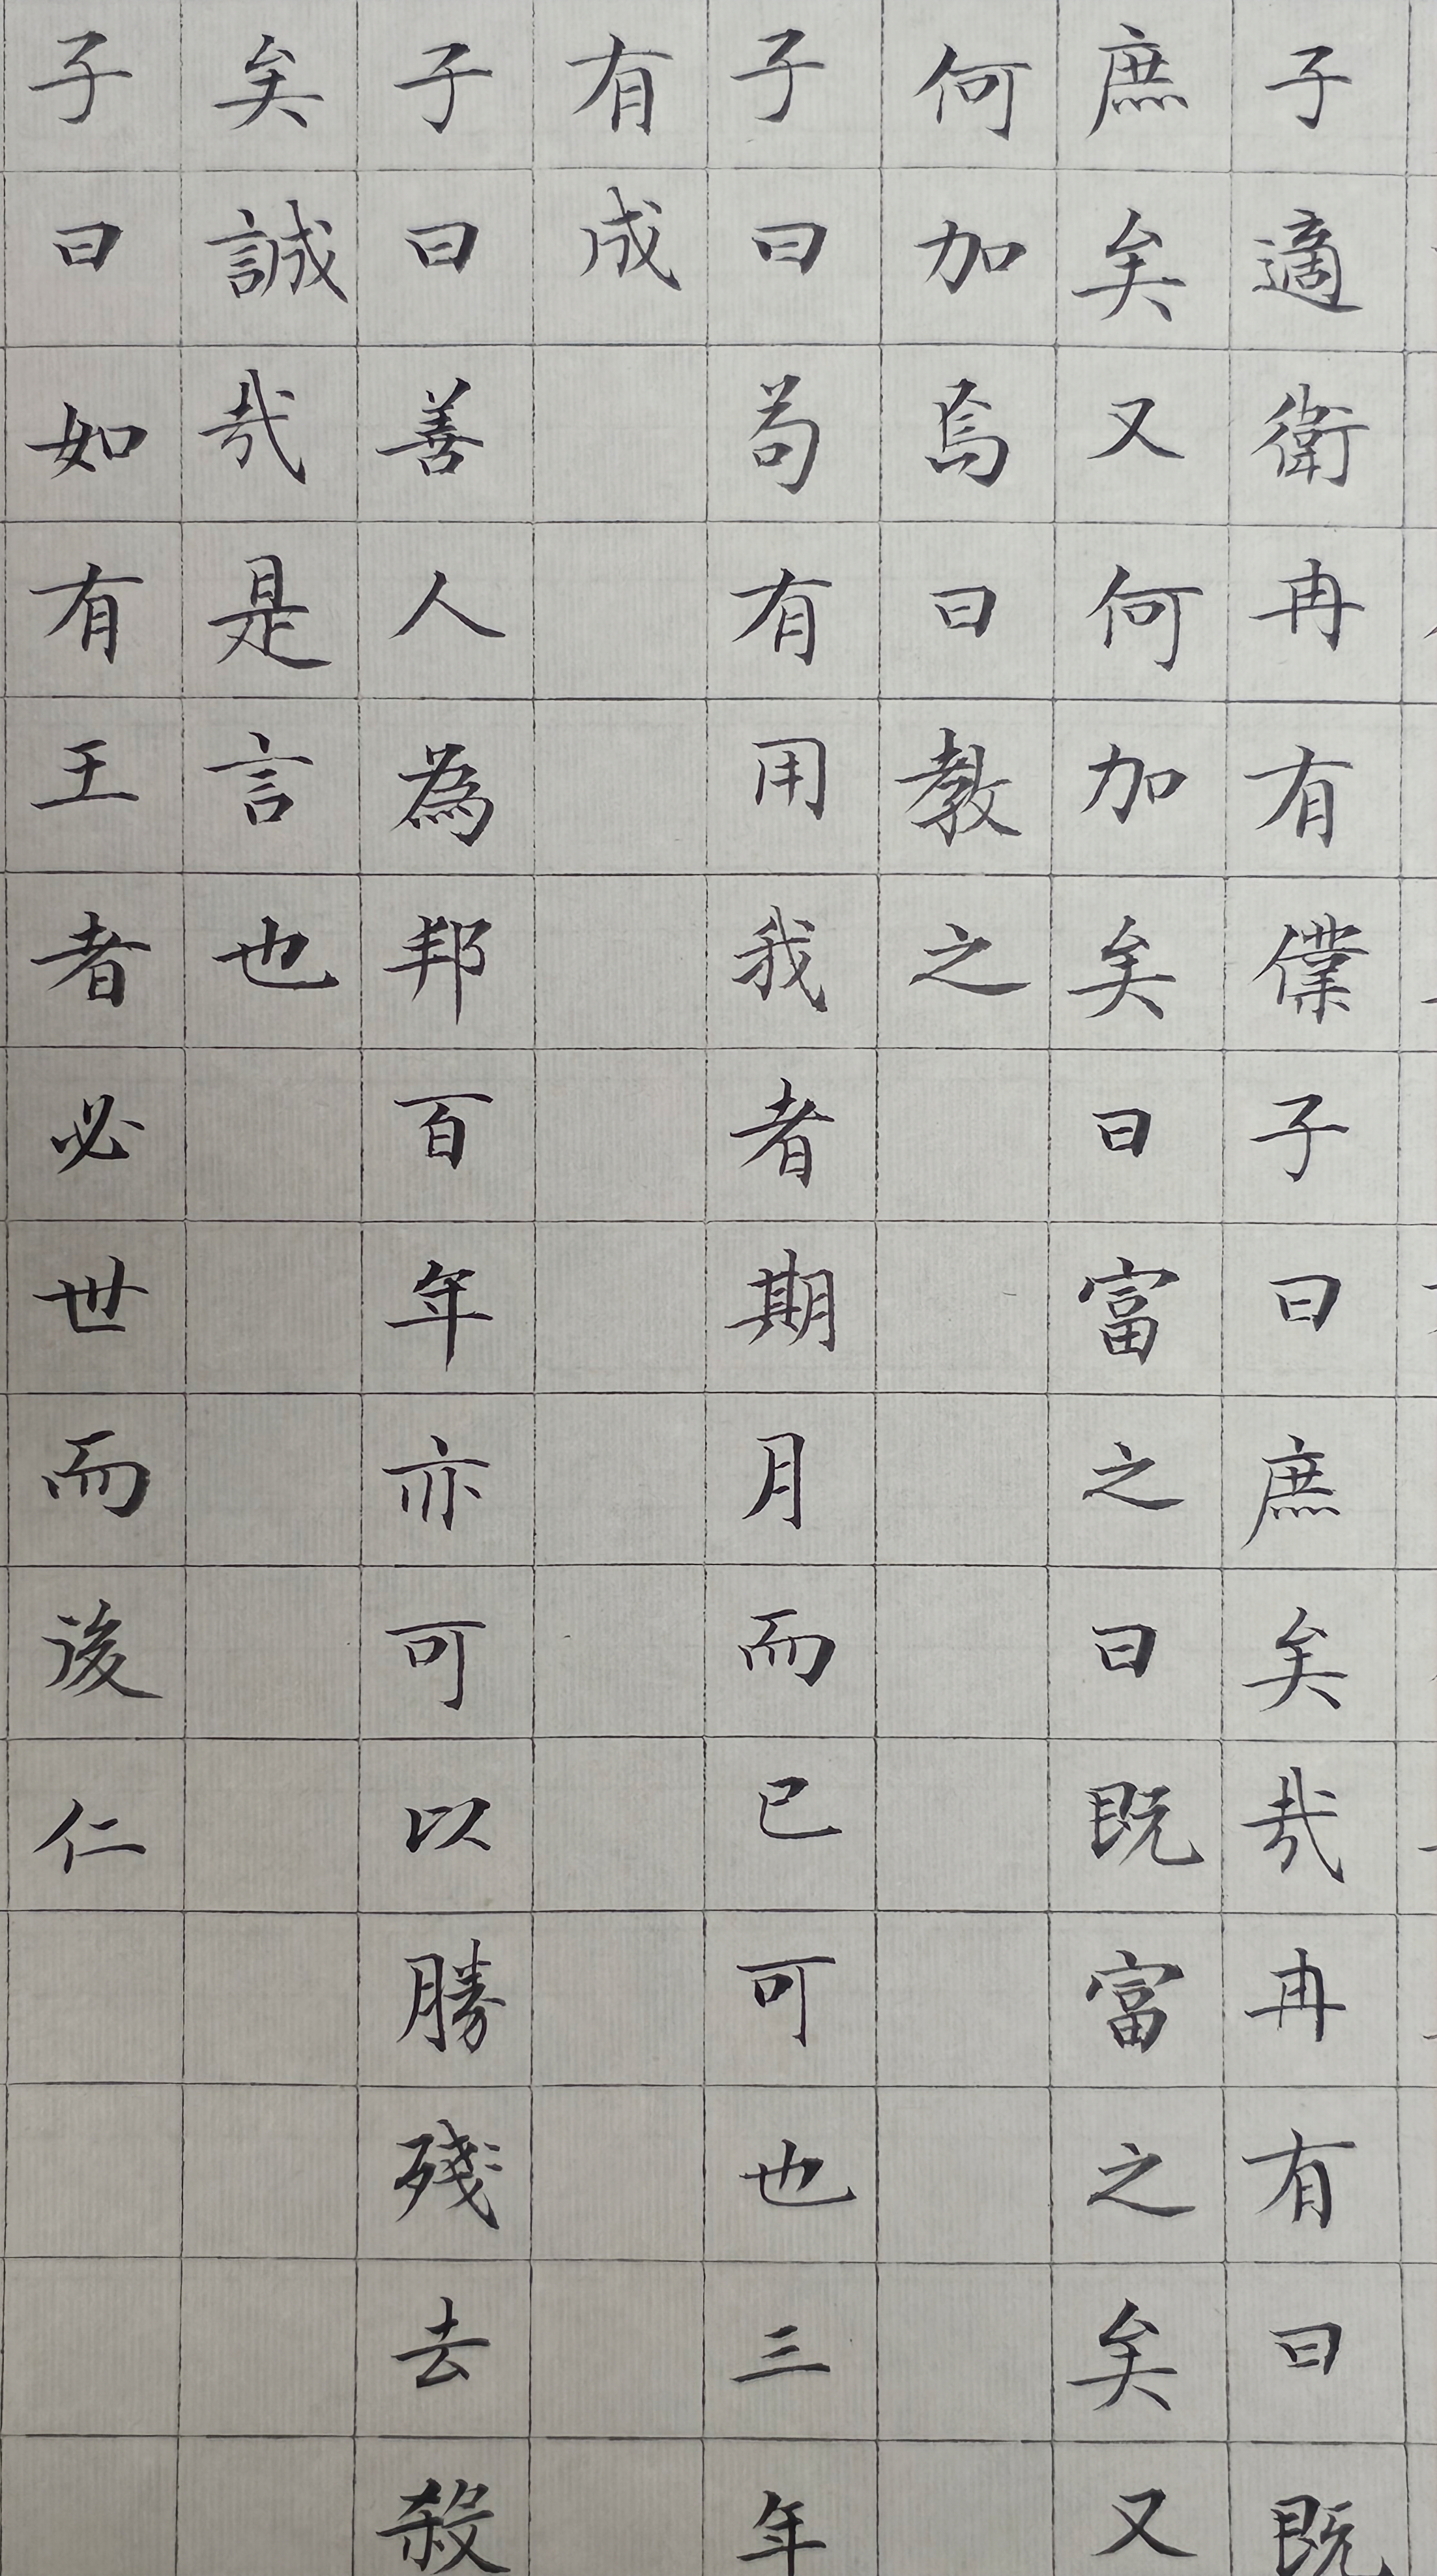 子適衛冉有僕子曰庶矣哉冉有曰既
庶矣又何加矣曰富之曰既富之矣又
何加焉曰教之
子曰苟有用我者期月而已可也三年
有成
子曰善人為邦百年亦可以勝殘去殺
矣誠哉是言也
子曰如有王者必世而後仁